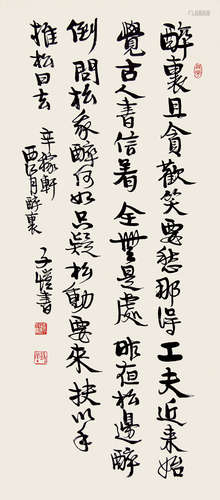 醉裏且貪歡笑要愁那得工夫近来始
覺古人書信着全無是處昨夜松邊醉
倒問松我醉何如只疑松動要来扶以手
推松曰去
辛稼軒
西江月醉裏
子愷書